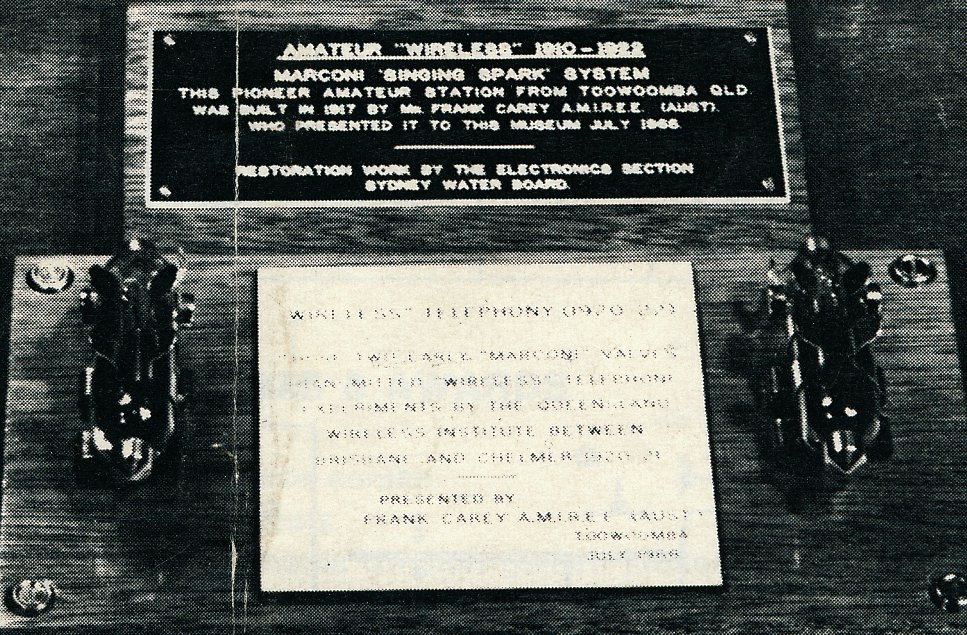 AMATEUR "WIRELESS" 1910-1922
MARCONI 'SINGING SPARK' SYSTEM
THIS PIONEER AMATEUR STATION FROM TOOWOOMBA QLD.
WAS BUILT IN 1917 BY MR. FRANK CAREY A.M.I.R.E.E. (AUST).
WHO PRESENTED IT TO THIS MUSEUM JULY 1966.
RESTORATION WORK BY THE ELECTRONICS SECTION
SYDNEY WATER BOARD.
"WIRELESS" TELEPHONY (1920-22)
TWO LARGE "MARCONI" VALVES
TRANSMITTED "WIRELESS" TELEPHONE
EXPERIMENTS BY THE QUEENSLAND
WIRELESS INSTITUTE BETWEEN
BRISBANE AND CHELMER 1920-21
PRESENTED BY
FRANK CAREY A.M.I.R.E.E. (AUST)
TOOWOOMBA
JULY 1966